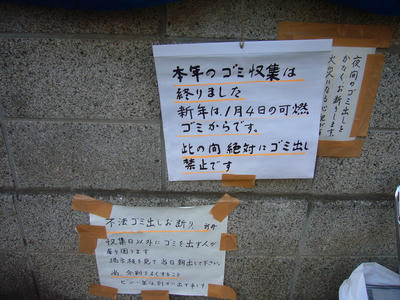 本年のゴミ収集は
終りました
新年は、1月4日の可燃
ゴミからです。
此の間 絶対にゴミ出し
禁止です
夜間のゴミ出しを
かたくお断りします。
不法ゴミ出しお断り
収集日以外にゴミを出す人が
居り困ります
掲示板を見て当日朝出して下さい。